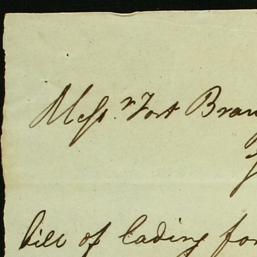 Messrs Fort Bran
bill of lading for